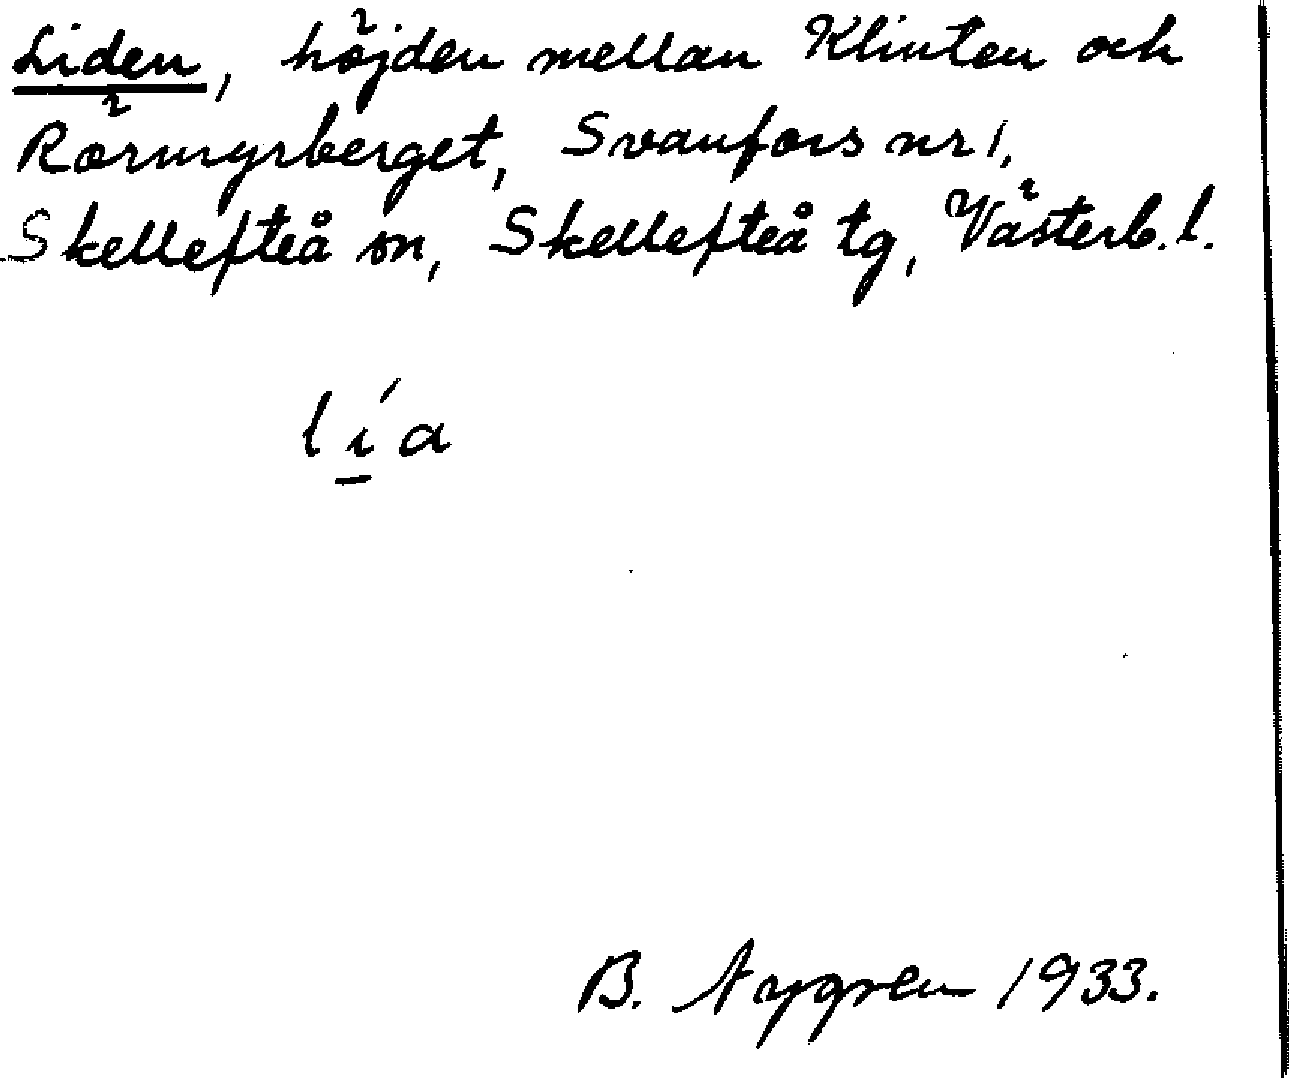 Liden, höjden mellan Klinten och
Rörmyrberget, Svanfors nr 1,
Skellefteå sn, Skellefteå tg, Västerb. l.
lı̱́a
B. Nygren 1933.